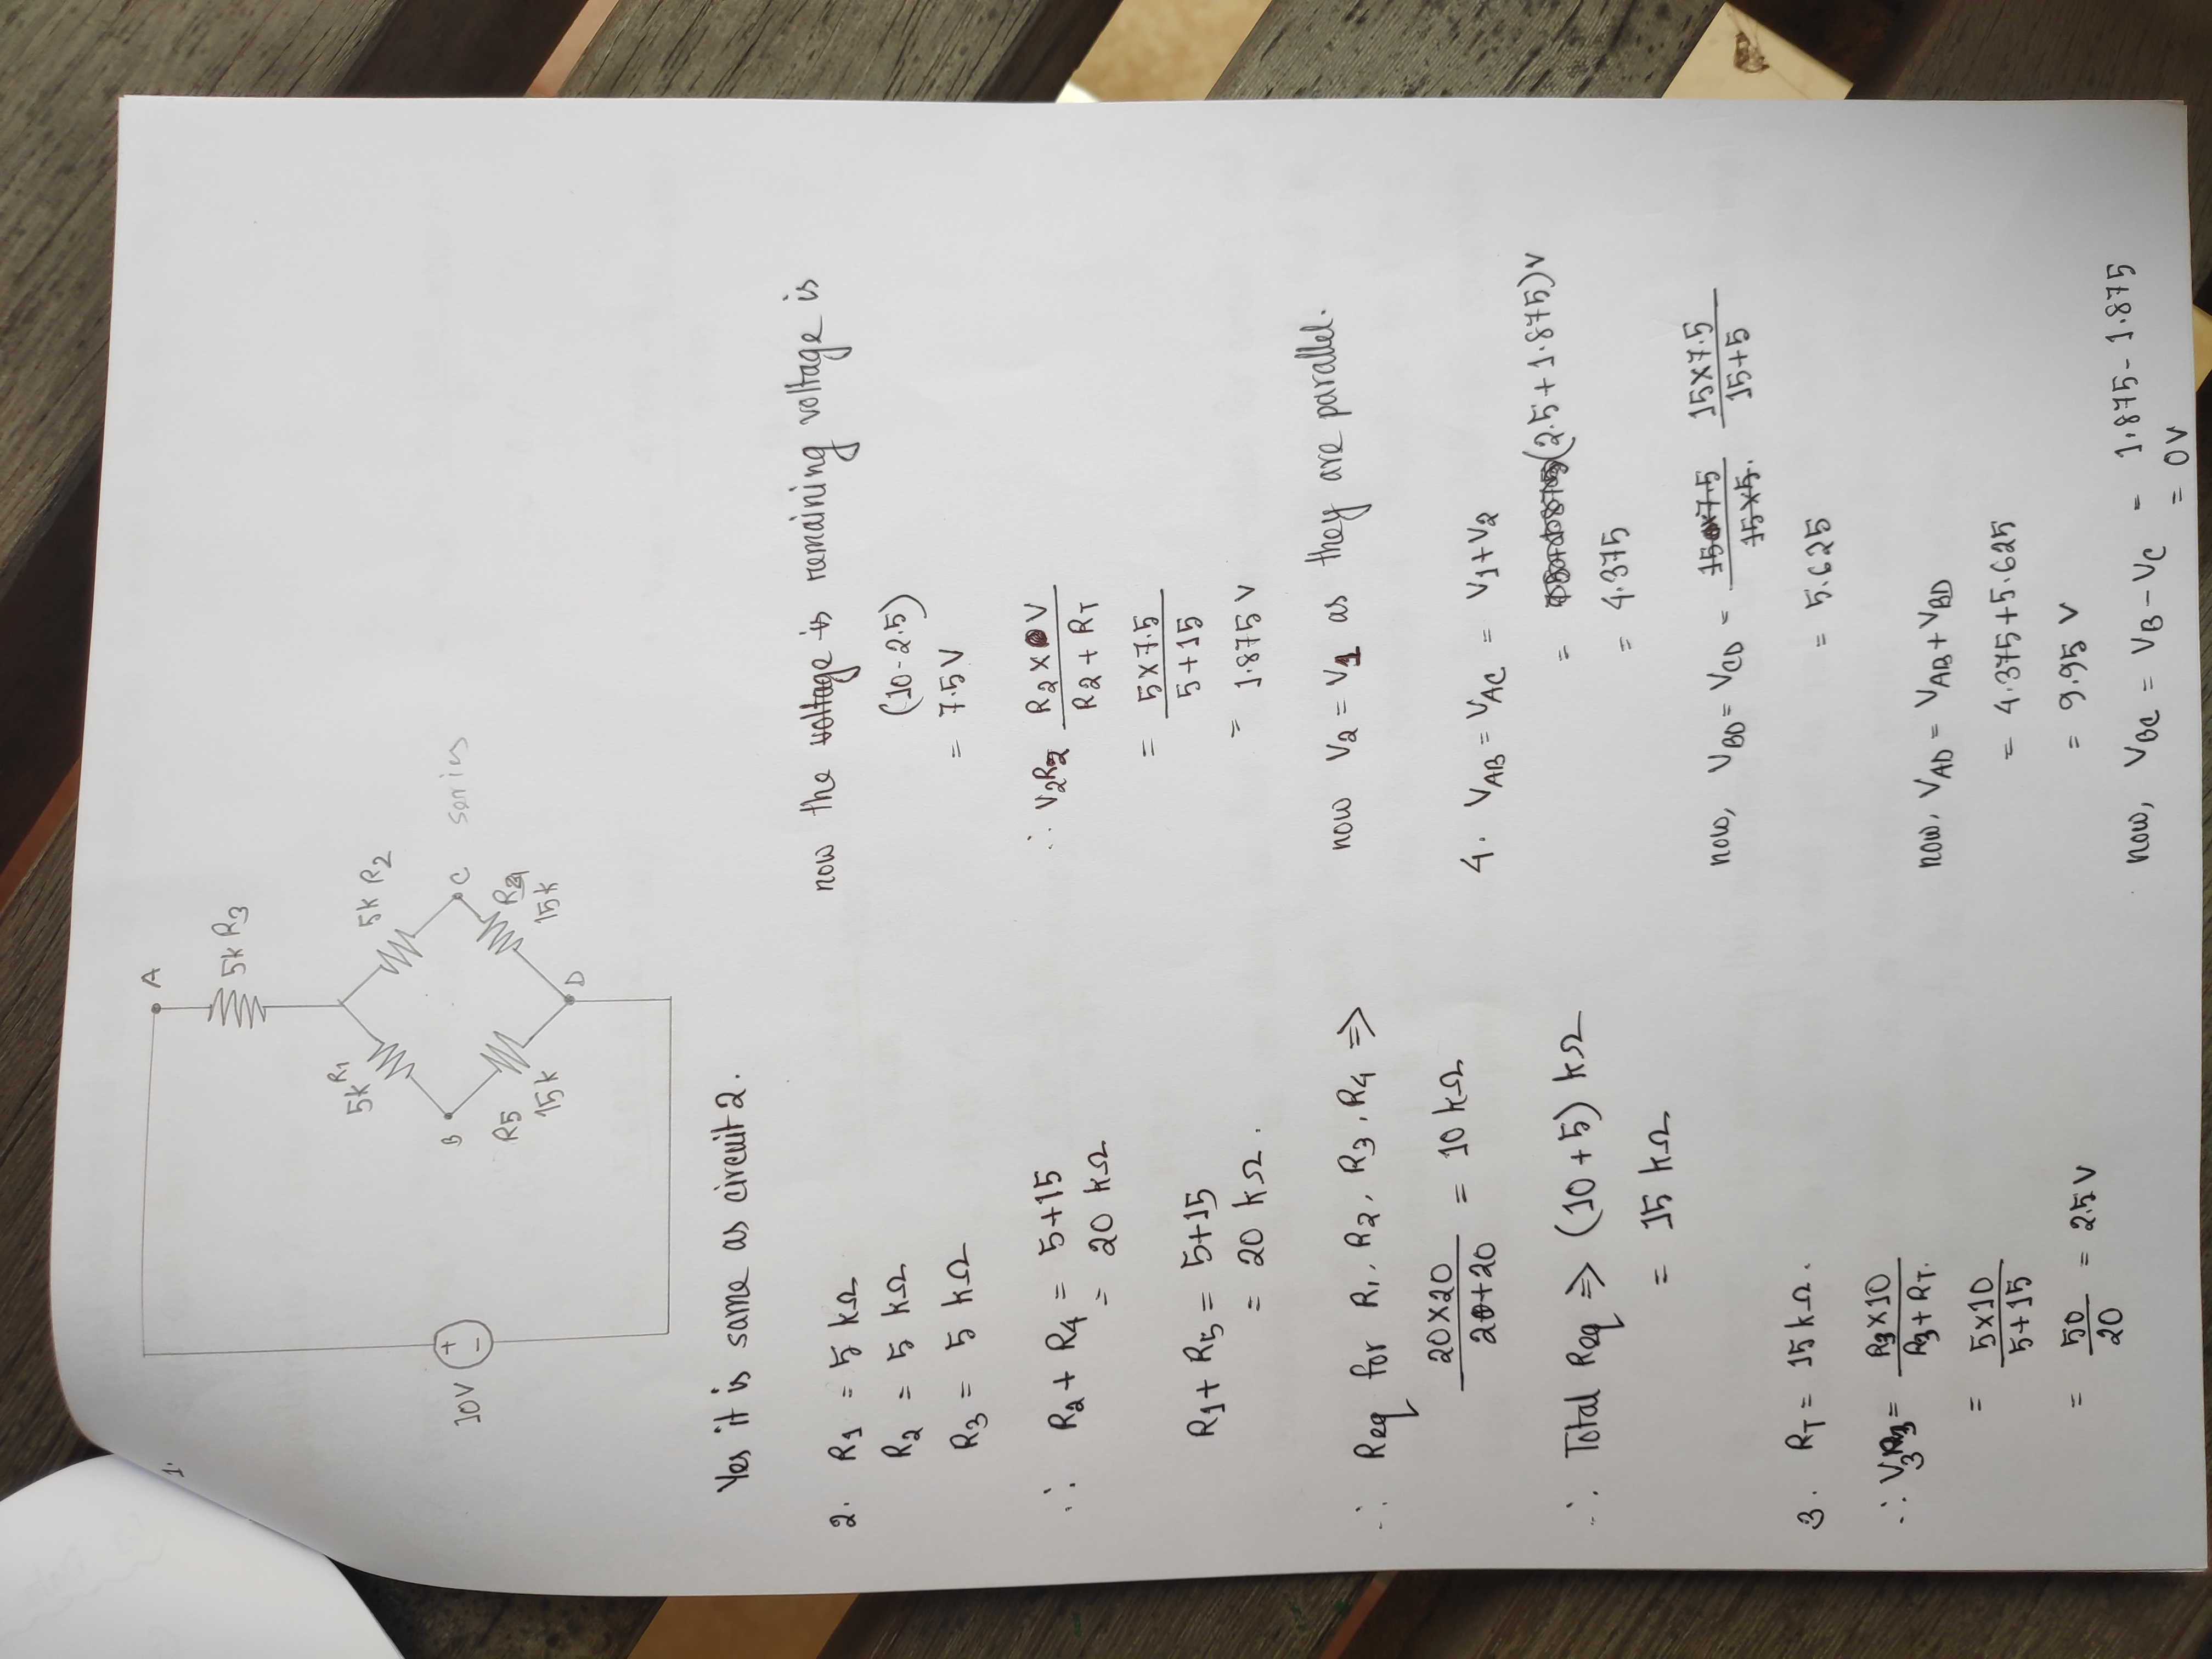 1.
A
5k R3
5k R1
5k R2
B
C series
10V
+
-
R5
15k
R4
15k
D
Yes it is same as circuit 2.
2. R1 = 5 kΩ
R2 = 5 kΩ
R3 = 5 kΩ
∴ R2 + R4 = 5+15
= 20 kΩ
R1 + R5 = 5+15
= 20 kΩ.
∴ Req for R1, R2, R3, R4 ⇒
20×20 / 20+20 = 10 kΩ
∴ Total Req ⇒ (10+5) kΩ
= 15 kΩ
3. RT = 15 kΩ.
∴ V3R3 = R3×10 / R3+RT.
= 5×10 / 5+15
= 50 / 20 = 2.5 V
now the voltage is remaining voltage is
(10-2.5)
= 7.5 V
∴ V2R2 R2 × V / R2 + RT
= 5×7.5 / 5+15
= 1.875 V
now V2 = V1 as they are parallel.
4. VAB = VAC = V1+V2
= (2.5+1.875)V
= 4.375
now, VBD = VCD = 15×7.5 / 15×5. 15×7.5 / 15+5
= 5.625
now, VAD = VAB+VBD
= 4.375+5.625
= 9.95 V
now, VBC = VB-VC = 1.875-1.875
= 0V